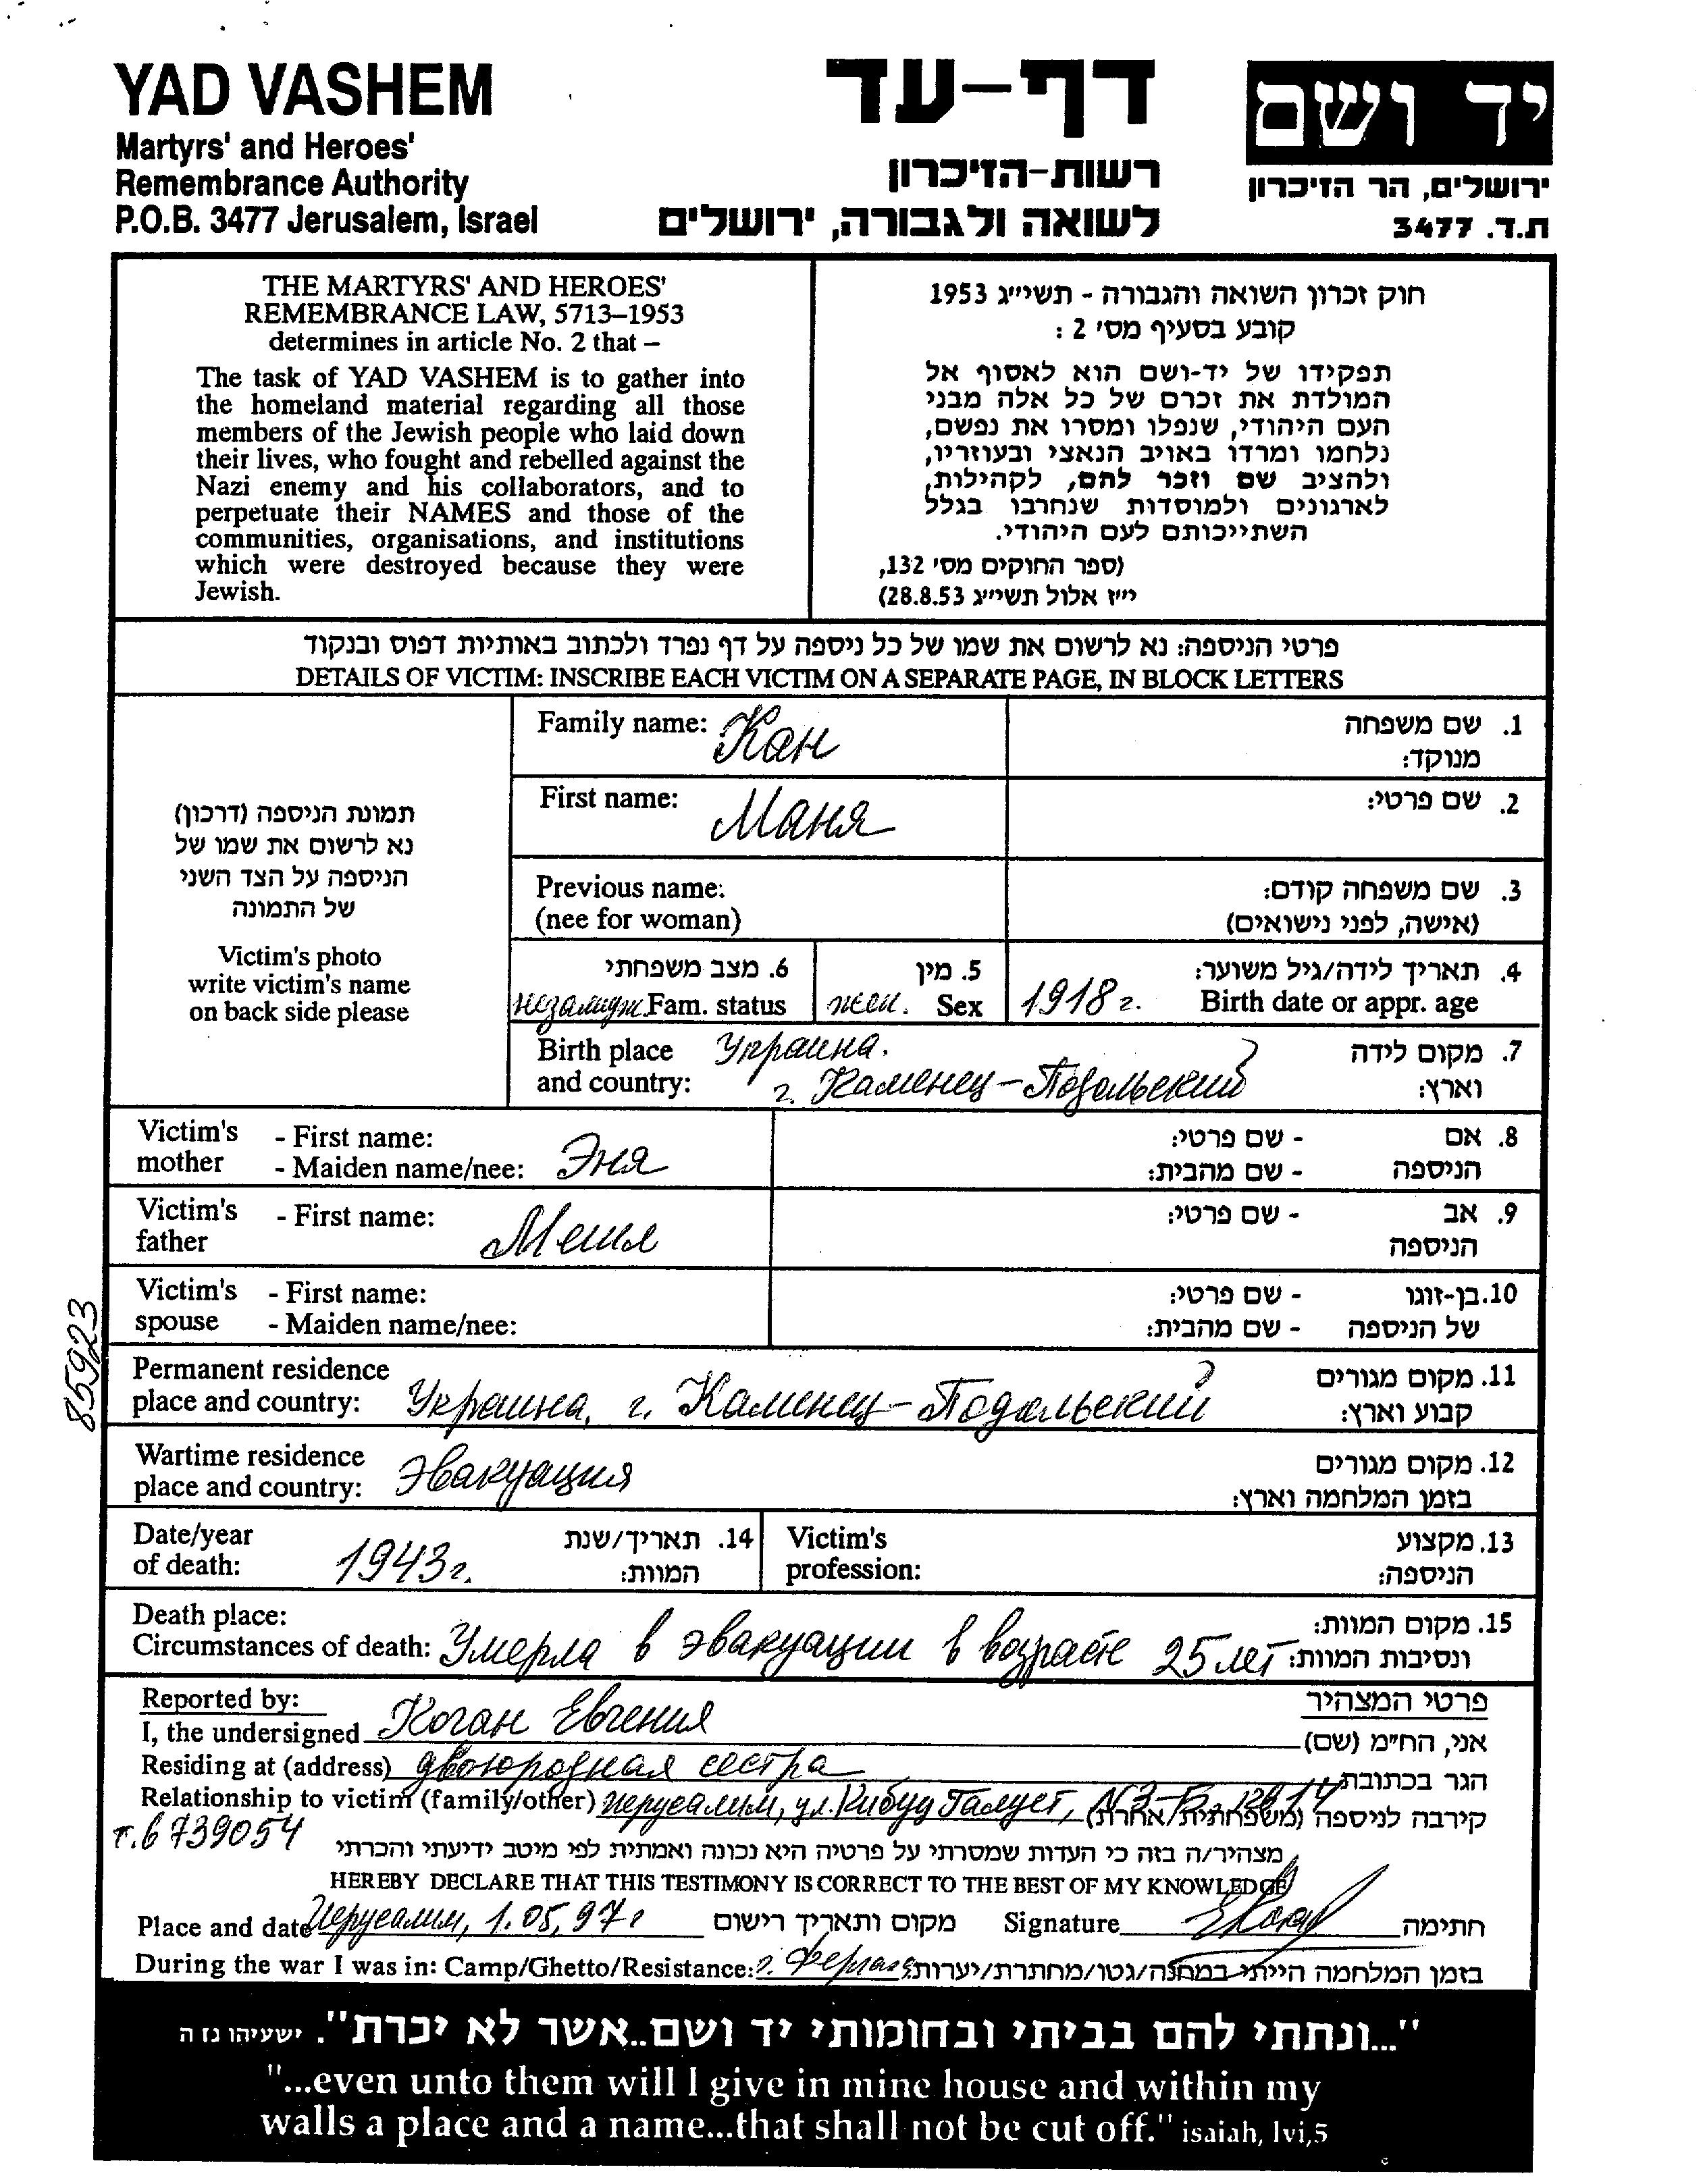 YAD VASHEM
Martyrs' and Heroes'
Remembrance Authority
P.O.B. 3477 Jerusalem, Israel
דף-עד
רשות-הזיכרון
לשואה ולגבורה, ירושלים
יד ושם
ירושלים, הר הזיכרון
ת.ד. 3477
THE MARTYRS' AND HEROES'
REMEMBRANCE LAW, 5713–1953
determines in article No. 2 that –
The task of YAD VASHEM is to gather into
the homeland material regarding all those
members of the Jewish people who laid down
their lives, who fought and rebelled against the
Nazi enemy and his collaborators, and to
perpetuate their NAMES and those of the
communities, organisations, and institutions
which were destroyed because they were
Jewish.
חוק זכרון השואה והגבורה - תשי״ג 1953
קובע בסעיף מס׳ 2 :
תפקידו של יד-ושם הוא לאסוף אל
המולדת את זכרם של כל אלה מבני
העם היהודי, שנפלו ומסרו את נפשם,
נלחמו ומרדו באויב הנאצי ובעוזריו,
ולהציב שם וזכר להם, לקהילות,
לארגונים ולמוסדות שנחרבו בגלל
השתייכותם לעם היהודי.
(ספר החוקים מס׳ 132,
י״ז אלול תשי״ג 28.8.53)
פרטי הניספה: נא לרשום את שמו של כל ניספה על דף נפרד ולכתוב באותיות דפוס ובנקוד
DETAILS OF VICTIM: INSCRIBE EACH VICTIM ON A SEPARATE PAGE, IN BLOCK LETTERS
תמונת הניספה (דרכון)
נא לרשום את שמו של
הניספה על הצד השני
של התמונה
Victim's photo
write victim's name
on back side please
Family name: Кан
1. שם משפחה
מנוקד:
First name: Маня
2. שם פרטי:
Previous name:
(nee for woman)
3. שם משפחה קודם:
(אישה, לפני נישואים)
6. מצב משפחתי
незамужн. Fam. status
5. מין
жен. Sex
4. תאריך לידה/גיל משוער:
1918 г. Birth date or appr. age
Birth place Украина.
and country: г. Каменец-Подольский
7. מקום לידה
וארץ:
Victim's - First name:
mother - Maiden name/nee: Эня
8. אם - שם פרטי:
הניספה - שם מהבית:
Victim's - First name:
father
9. אב - שם פרטי:
הניספה
Victim's - First name:
spouse - Maiden name/nee:
10. בן-זוגו - שם פרטי:
של הניספה - שם מהבית:
85923
Permanent residence
place and country: Украина, г. Каменец-Подольский
11. מקום מגורים
קבוע וארץ:
Wartime residence
place and country: Эвакуация
12. מקום מגורים
בזמן המלחמה וארץ:
Date/year
of death: 1943 г.
14. תאריך/שנת
המוות:
Victim's
profession:
13. מקצוע
הניספה:
Death place:
Circumstances of death: Умерла в эвакуации в возрасте 25 лет
15. מקום המוות:
ונסיבות המוות:
Reported by:
פרטי המצהיר
I, the undersigned Коган Евгения
אני, הח״מ (שם)
Residing at (address) двоюродная сестра
הגר בכתובת
Relationship to victim (family/other) Иерусалим, ул. Кибуц Галует, N3-
קירבה לניספה (משפחתית/אחרת)
т. 6739054
מצהיר/ה בזה כי העדות שמסרתי על פרטיה היא נכונה ואמתית לפי מיטב ידיעתי והכרתי
HEREBY DECLARE THAT THIS TESTIMONY IS CORRECT TO THE BEST OF MY KNOWLEDGE
Place and date Иерусалим, 1.05.97 г מקום ותאריך רישום Signature חתימה
During the war I was in: Camp/Ghetto/Resistance: г. Фергана בזמן המלחמה הייתי במחנה/גטו/מחתרת/יערות:
"...ונתתי להם בביתי ובחומותי יד ושם..אשר לא יכרת". ישעיהו נז ה
"...even unto them will I give in mine house and within my
walls a place and a name...that shall not be cut off." isaiah, lvi,5